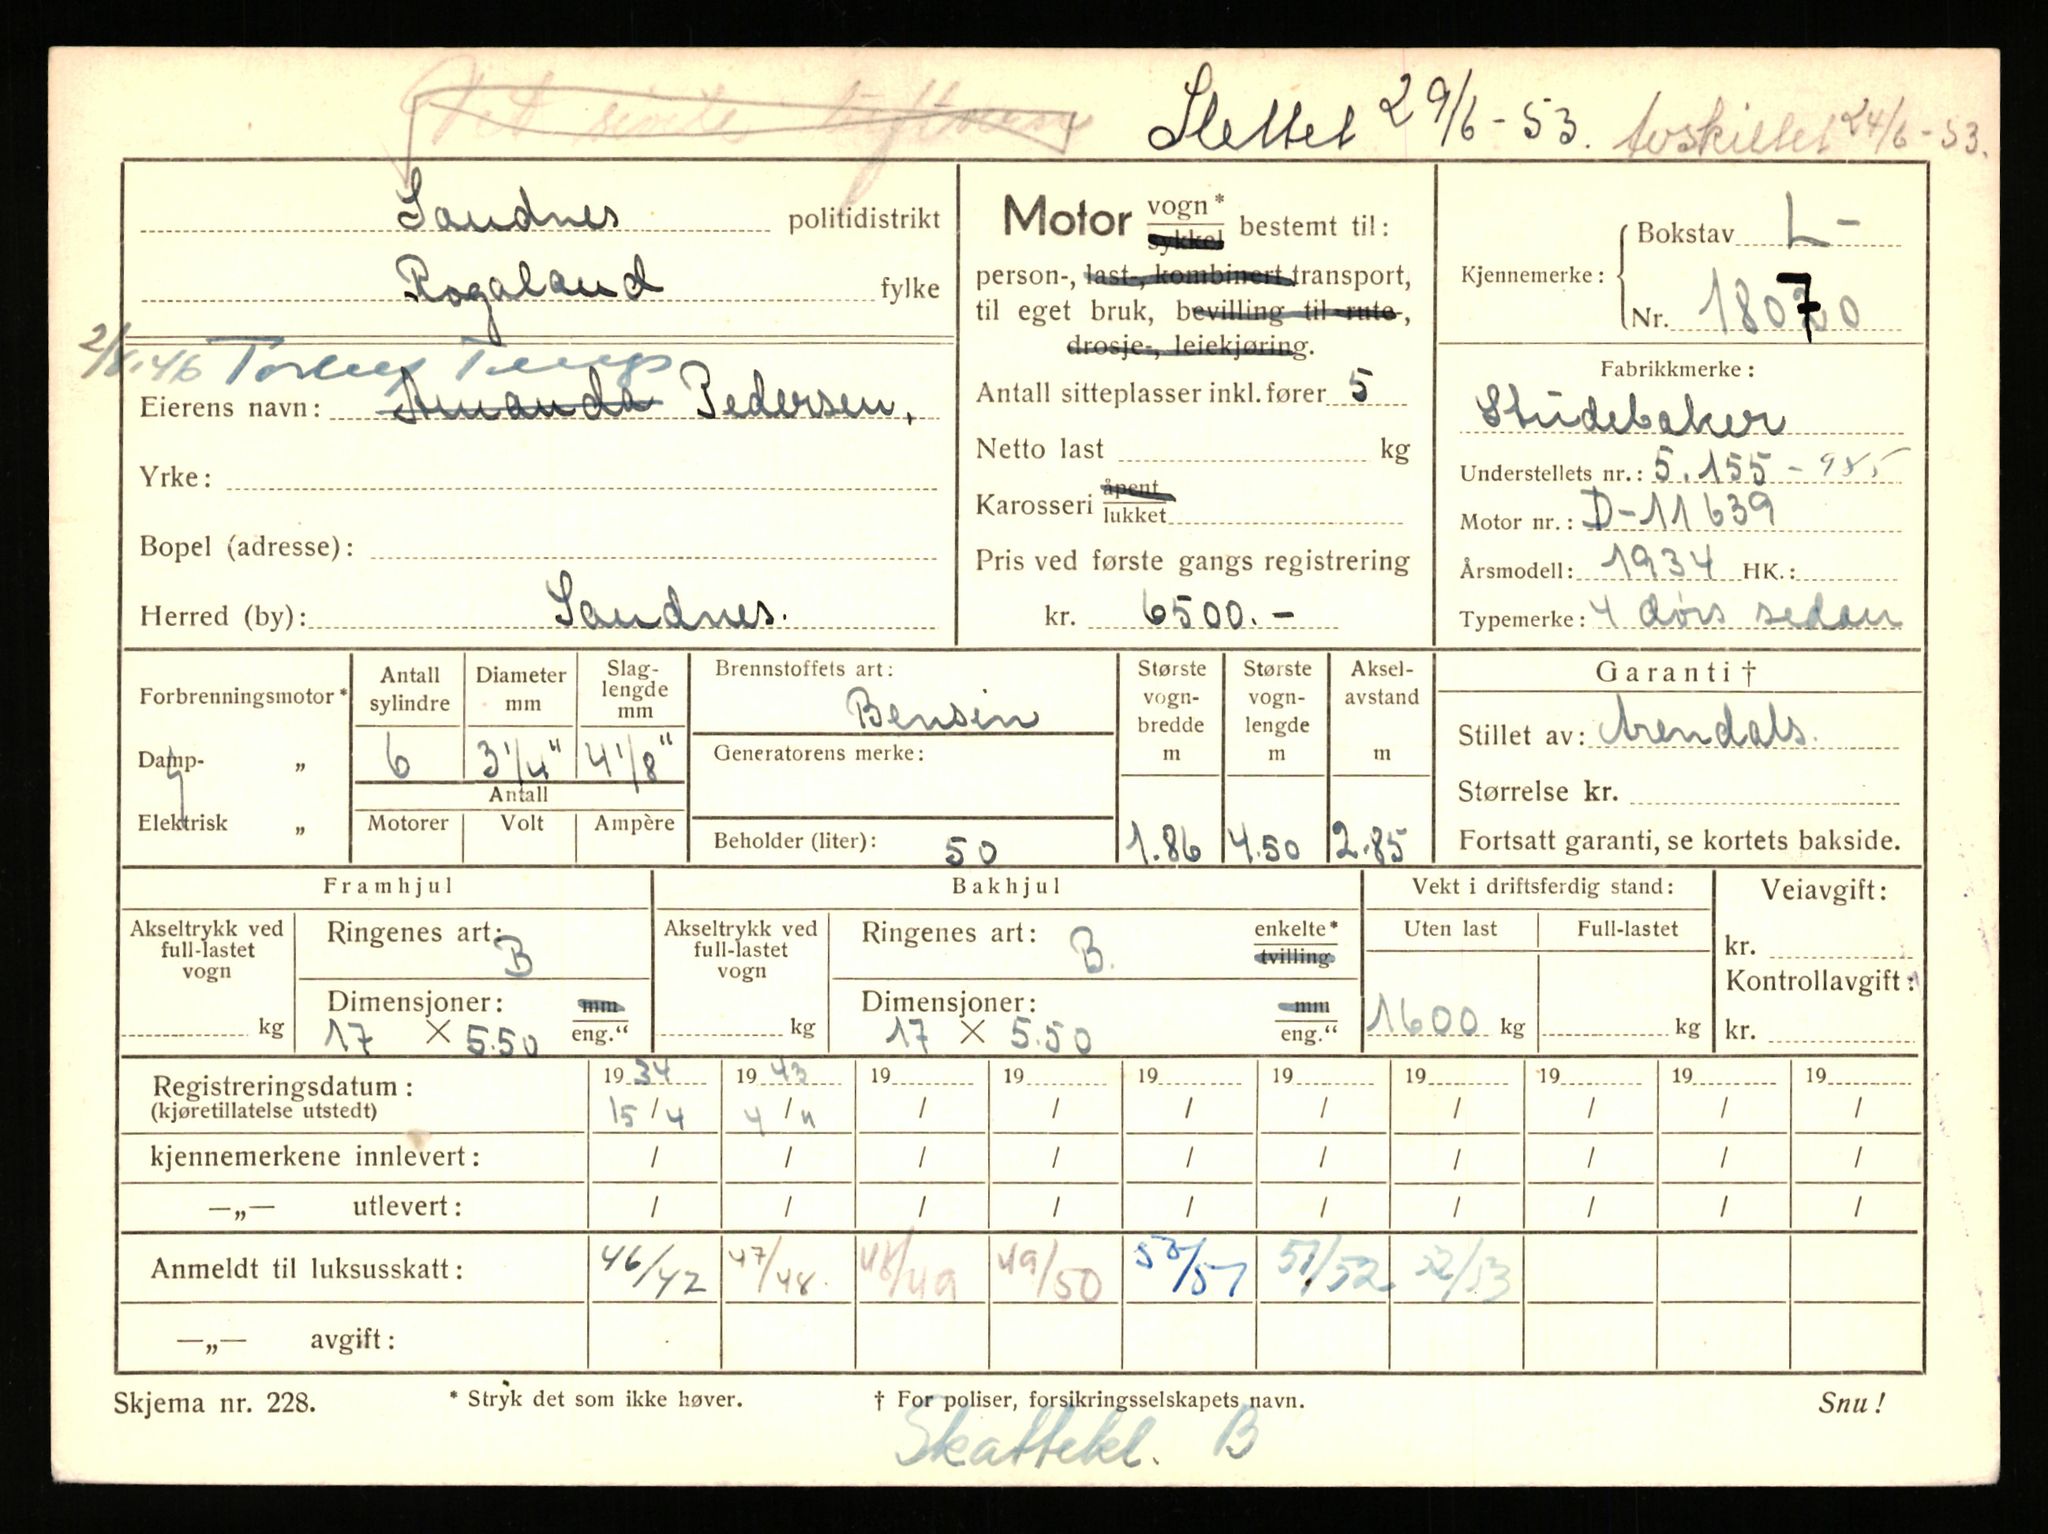 Det sivile luftvern
Slettet 29/6-53. Avskiltet 24/6-53.
Sandnes politidistrikt
Rogaland fylke
2/8.46
Eierens navn: Amanda Pedersen.
Yrke:
Bopel (adresse):
Herred (by): Sandnes.
Motor vogn* sykkel bestemt til:
person-, last-, kombinert transport,
til eget bruk, bevilling til rute-,
drosje-, leiekjøring.
Antall sitteplasser inkl. fører 5
Netto last kg
Karosseri åpent lukket
Pris ved første gangs registrering
kr. 6500.-
Kjennemerke: Bokstav L-
Nr. 18070
Fabrikkmerke:
Studebaker
Understellets nr.: 5.155-985
Motor nr.: D-11639
Årsmodell: 1934 HK.:
Typemerke: 4 dørs sedan
Forbrenningsmotor*
Damp- „
Elektrisk „
Antall sylindre
6
Diameter mm
3 1/4"
Slag-lengde mm
4 1/8"
Antall
Motorer Volt Ampère
Brennstoffets art:
Bensin
Generatorens merke:
Beholder (liter): 50
Største vogn-bredde m
1.86
Største vogn-lengde m
4.50
Aksel-avstand m
2.85
Garanti †
Stillet av: Arendals.
Størrelse kr.
Fortsatt garanti, se kortets bakside.
Framhjul
Akseltrykk ved full-lastet vogn
kg
Ringenes art: B
Dimensjoner: mm
17 × 5.50 eng.“
Bakhjul
Akseltrykk ved full-lastet vogn
kg
Ringenes art: B. enkelte* tvilling
Dimensjoner: mm
17 × 5.50 eng.“
Vekt i driftsferdig stand:
Uten last Full-lastet
1600 kg kg
Veiavgift:
kr.
Kontrollavgift:
kr.
Registreringsdatum: 19 34 19 43 19 19 19 19 19 19 19 19
(kjøretillatelse utstedt) 15/4 4/11 / / / / / / / /
kjennemerkene innlevert: / / / / / / / / / /
—„— utlevert: / / / / / / / / / /
Anmeldt til luksusskatt: 46/42 47/48. 48/49 49/50 50/51 51/52 52/53
—„— avgift:
Skjema nr. 228. * Stryk det som ikke høver. † For poliser, forsikringsselskapets navn. Snu!
Skattekl. B